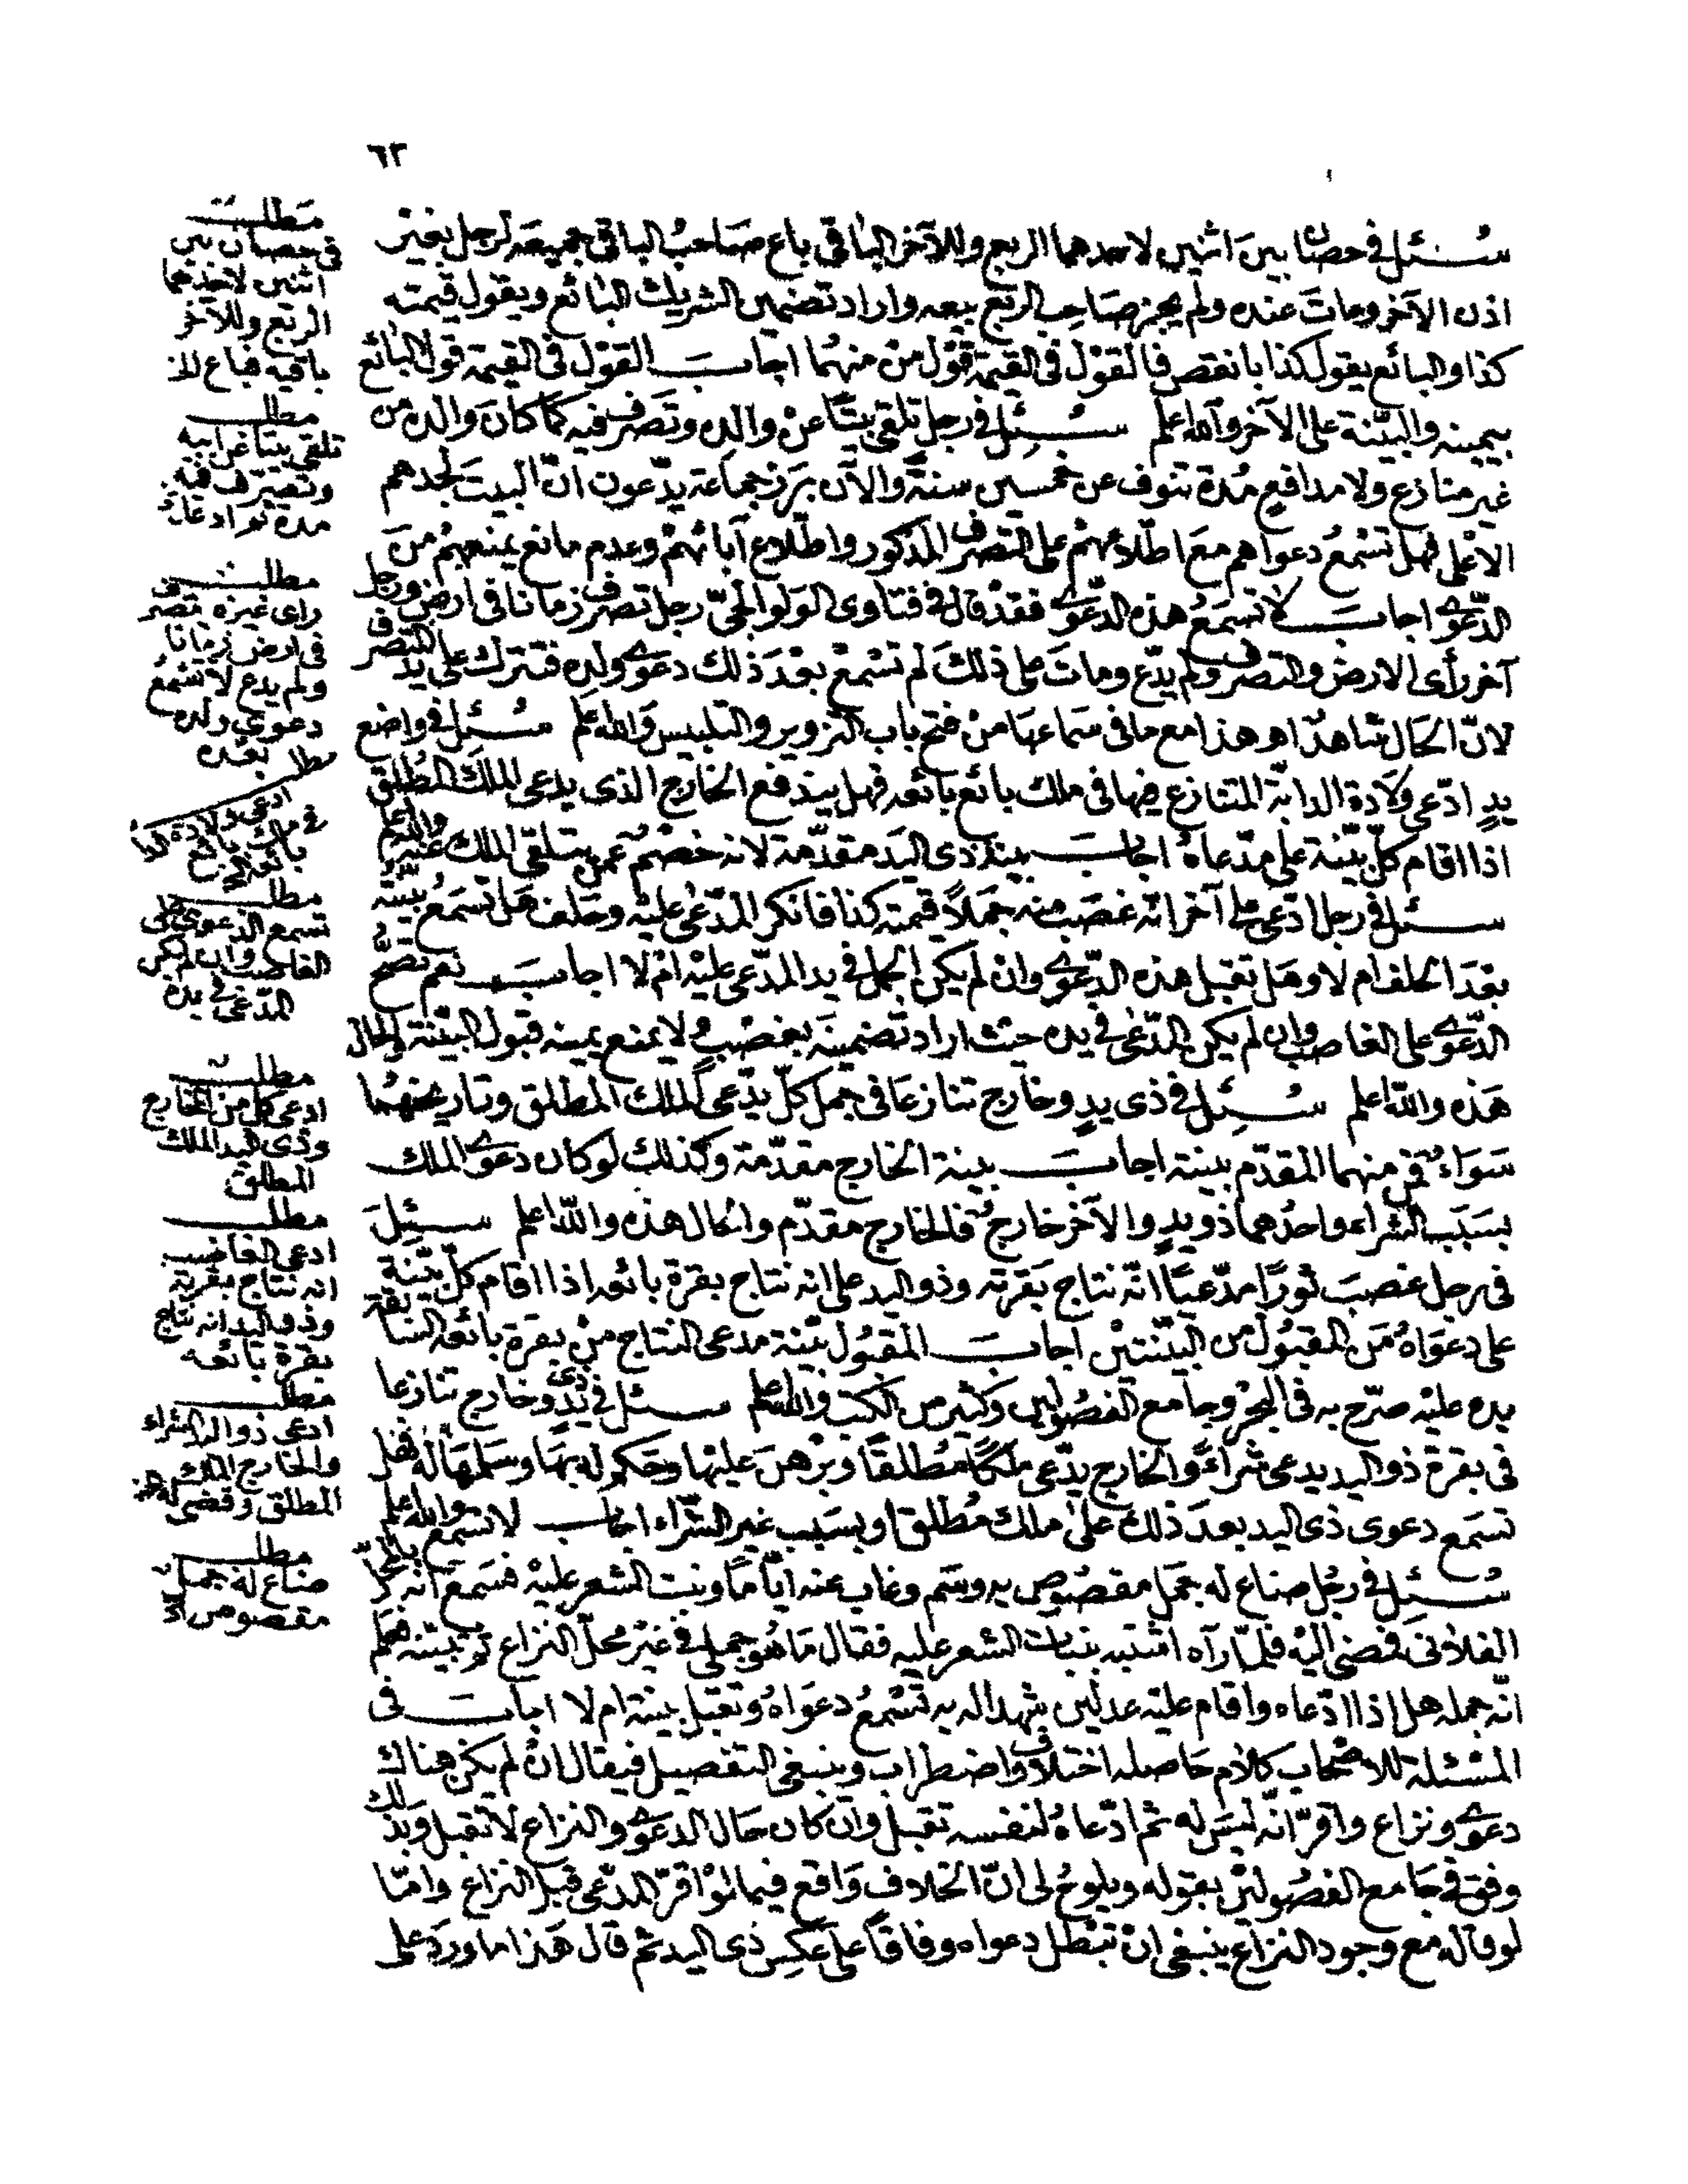 ٦٣
سئل في حصان بين اثنين لاحدهما الربع وللآخر الباقي باع صاحب الباقي جميعه لرجل بغير
اذن الآخر ومات عنده ولم يجز صاحب الربع بيعه واراد تضمين الشريك البائع ويقول قيمته
كذا والبائع يقول كذا بانقص فالقول في القيمة قول من منهما اجاب القول في القيمة قول البائع
بيمينه والبينة على الآخر والله اعلم سئل في رجل تلقى بيتا عن والده وتصرف فيه كما كان والده من
غير منازع ولا مدافع مدة تنوف عن خمسين سنة والآن برز جماعة يدعون ان البيت لجدهم
الاعلى فهل تسمع دعواهم مع اطلاعهم على التصرف المذكور واطلاع آبائهم وعدم مانع يمنعهم من
الدعوى اجاب لا تسمع هذه الدعوى فقد قال في فتاوى الولوالجي رجل تصرف زمانا في ارض ورجل
آخر رأى الارض والتصرف ولم يدع ومات على ذلك لم تسمع بعد ذلك دعوى ولده فتترك على يد المتصرف
لان الحال شاهد اهـ هذا مع ما في سماعها من فتح باب التزوير والتلبيس والله اعلم سئل في واضع
يد ادعى ولادة الدابة المتنازع فيها في ملك بائع بائعه فهل يندفع الخارج الذي يدعى الملك المطلق
اذا اقام كل بينة على مدعاه اجاب بينة ذي اليد مقدمة لانه خصم عمن يتلقى الملك عنه والله اعلم
سئل في رجل ادعى على آخر انه غصب منه جملا قيمته كذا فانكر المدعى عليه وحلف هل تسمع بينته
بعد الحلف ام لا وهل تقبل هذه الدعوى وان لم يكن الجمل في يد المدعى عليه ام لا اجاب نعم تصح
الدعوى على الغاصب وان لم يكن المدعى في يده حيث اراد تضمينه بغصب ولا يمنع يمينه قبول البينة والحال
هذه والله اعلم سئل في ذي يد وخارج تنازعا في جمل كل يدعي الملك المطلق وتاريخهما
سواء فمن منهما المقدم بينته اجاب بينة الخارج مقدمة وكذلك لو كان دعوى الملك
بسبب الشراء واحدهما ذو يد والآخر خارج فالخارج مقدم والحال هذه والله اعلم سئل
في رجل غصب ثورا مدعيا انه نتاج بقرته وذو اليد على انه نتاج بقرة بائعه اذا اقام كل بينة
على دعواه من المقبول من البينتين اجاب المقبول بينة مدعى النتاج من بقرة بائعه السابقة
يده عليه صرح به في البحر وجامع الفصولين وكثير من الكتب والله اعلم سئل في ذي يد وخارج تنازعا
في بقرة ذو اليد يدعى شراء والخارج يدعى ملكا مطلقا وبرهن عليها وحكم له بها وسلمها له فهل
تسمع دعوى ذي اليد بعد ذلك على ملك مطلق او بسبب غير الشراء اجاب لا تسمع والله اعلم
سئل في رجل ضاع له جمل مقصوص به وسم وغاب عنه اياما ونبت الشعر عليه فسمع انه بالمحل
الفلاني فمضى اليه فلما رآه اشتبه بنبات الشعر عليه فقال ما هو جملي في غير محل النزاع ثم تبينه فعلم
انه جمله هل اذا ادعاه واقام عليه عدلين شهدا له به تسمع دعواه وتقبل بينته ام لا اجاب في
المسئلة للاصحاب كلام حاصله اختلاف واضطراب وينبغي التفصيل فيقال ان لم يكن هناك
دعوى ونزاع واقر انه ليس له ثم ادعاه لنفسه تقبل وان كان حال الدعوى والنزاع لا تقبل وبذلك
وفق في جامع الفصولين بقوله ويلوح لي ان الخلاف واقع فيما لو اقر المدعى قبل النزاع واما
لو قاله مع وجود النزاع ينبغي ان تبطل دعواه وفاقا على عكس ذي اليد ثم قال هذا ما ورد على
مطلب
في حصان بين
اثنين لاحدهما
الربع وللآخر
باقيه فباع الخ
مطلب
تلقى بيتا عن ابيه
وتصرف فيه
مدة ثم ادعاه
مطلب
رأى غيره تصرف
في ارض زمانا
ولم يدع لا تسمع
دعوى ولده
بعده
مطلب
ادعى ولادة الدابة
في ملك بائع
بائعه الخ
مطلب
تسمع الدعوى على
الغاصب وان لم يكن
المدعى في يده
مطلب
ادعى كل من الخارج
وذي اليد الملك
المطلق
مطلب
ادعى الغاصب
انه نتاج بقرته
وذو اليد انه نتاج
بقرة بائعه
مطلب
ادعى ذو اليد الشراء
والخارج الملك
المطلق وقضى له
مطلب
ضاع له جمل
مقصوص الخ